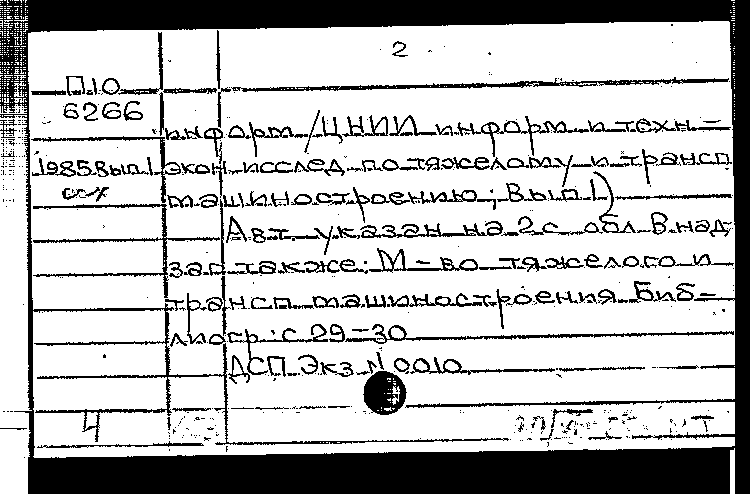 2
П10
6266
информ /ЦНИИ информ и техн-
1985 Вып 1 экон исслед по тяжелому и трансп
машиностроению; Вып 1)
Авт. указан на 2 с обл В над
заг также: М-во тяжелого и
трансп машиностроения Биб-
лиогр: с 29-30
ДСП Экз N 0010
4